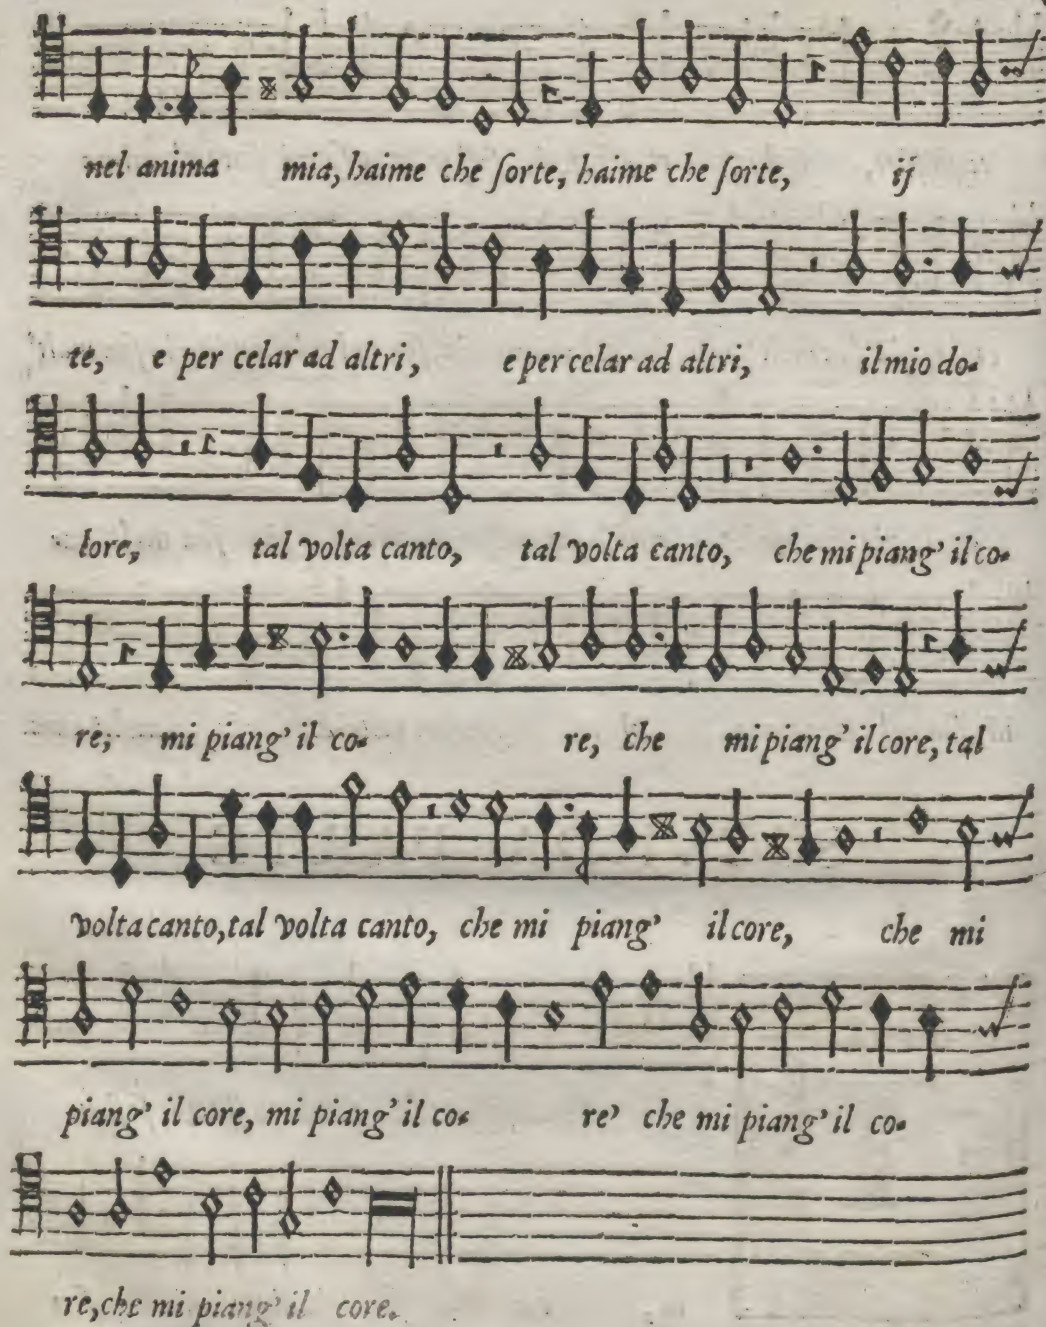 nel anima mia, haime che ſorte, haime che ſorte, ij
te, e per celar ad altri, e per celar ad altri, il mio do-
lore, tal volta canto, tal volta canto, che mi piang' il co-
re, mi piang' il co- re, che mi piang' il core, tal
volta canto, tal volta canto, che mi piang' il core, che mi
piang' il core, mi piang' il co- re' che mi piang' il co-
re, che mi piang' il core.